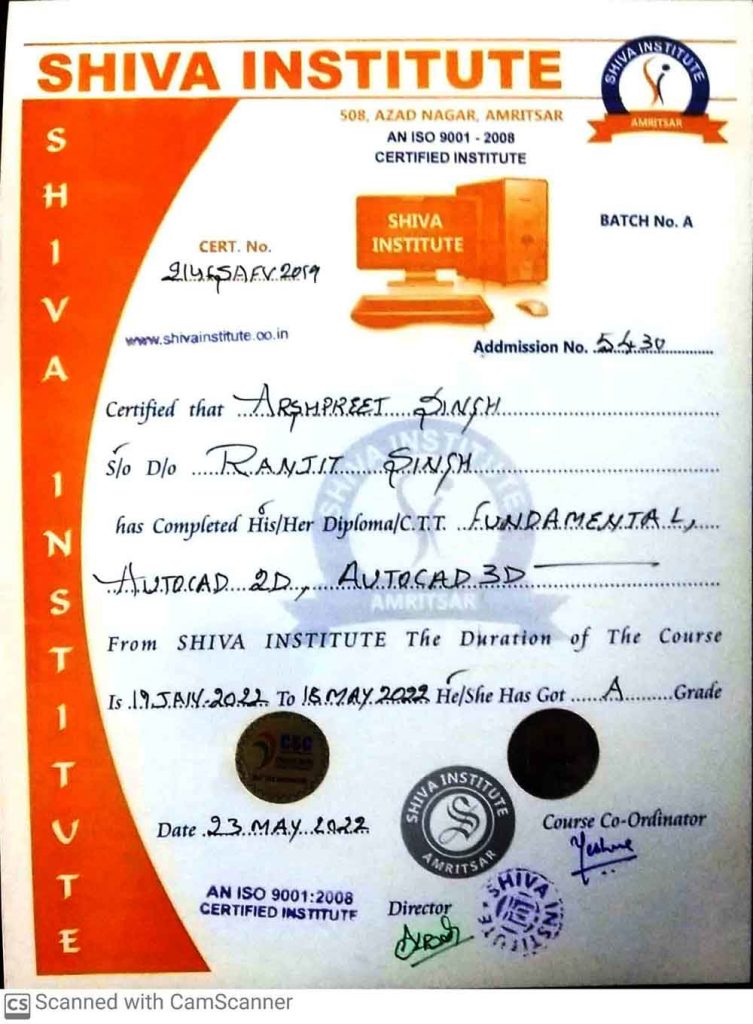 SHIVA INSTITUTE
SHIVA INSTITUTE
AMRITSAR
508, AZAD NAGAR, AMRITSAR
AN ISO 9001 - 2008
CERTIFIED INSTITUTE
SHIVA INSTITUTE
SHIVA
INSTITUTE
BATCH No. A
CERT. No.
www.shivainstitute.co.in
Addmission No. 5430
Certified that ARSHPREET SINGH
S/o D/o RANJIT SINGH
has Completed His/Her Diploma/C.T.T. FUNDAMENTAL,
AUTOCAD 2D, AUTOCAD 3D
SHIVA INSTITUTE
AMRITSAR
From SHIVA INSTITUTE The Duration of The Course
Is 19 JAN-2022 To 18 MAY 2022 He/She Has Got A Grade
CSC
SHIVA INSTITUTE
S
AMRITSAR
Date 23 MAY 2022
Course Co-Ordinator
AN ISO 9001:2008
CERTIFIED INSTITUTE
Director
SHIVA
INSTITUTE
CS Scanned with CamScanner